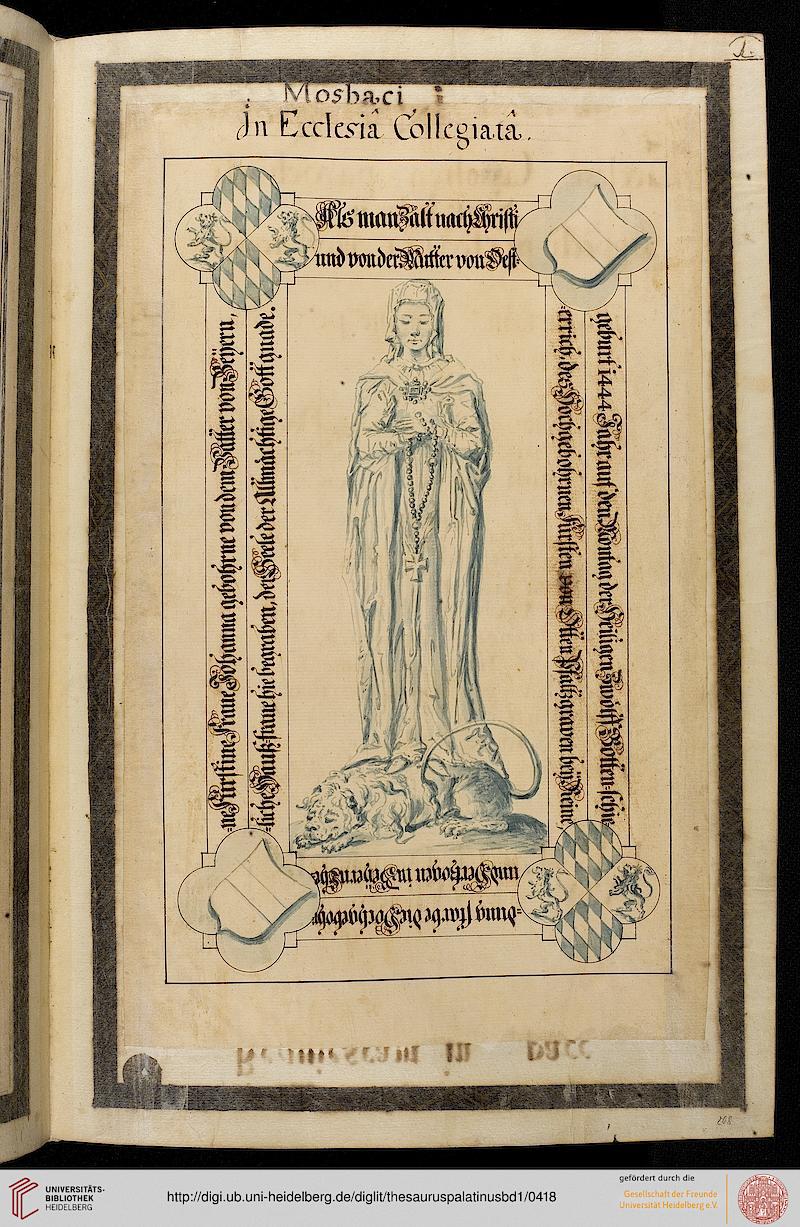 1.
Mosbaci
In Ecclesiâ Collegiatâ.
Als man Zält nach Christi
geburt 1444 Jahr auf den Montag der Heiligen Zwölff Botten-schie-
=dung starbe die Hochgebohr=
=ne Fürstine Fraue Johanna gebohrne von dem Vatter von Beÿern,
und von der Mutter von Oest=
errich, des Hochgebohrnen Fürsten von Otten Pfaltzgraven beÿ Reine
und Hertzogen in Beÿern Ehe=
=liche Hauß-fraue hie begraben, der Seele der Allmächtige Gott gnade.
in pace
208
UNIVERSITÄTS-
BIBLIOTHEK
HEIDELBERG
http://digi.ub.uni-heidelberg.de/diglit/thesauruspalatinusbd1/0418
gefördert durch die
Gesellschaft der Freunde
Universität Heidelberg e.V.